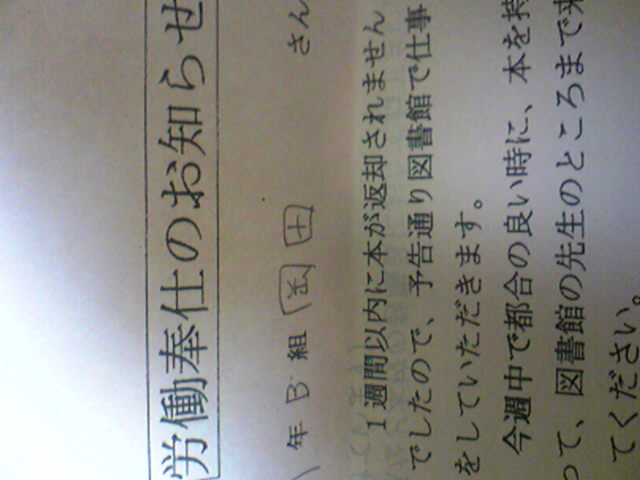 労働奉仕のお知らせ
年 B 組 岡田 さん
1週間以内に本が返却されません
でしたので、予告通り図書館で仕事
をしていただきます。
今週中で都合の良い時に、本を持
って、図書館の先生のところまで来
てください。